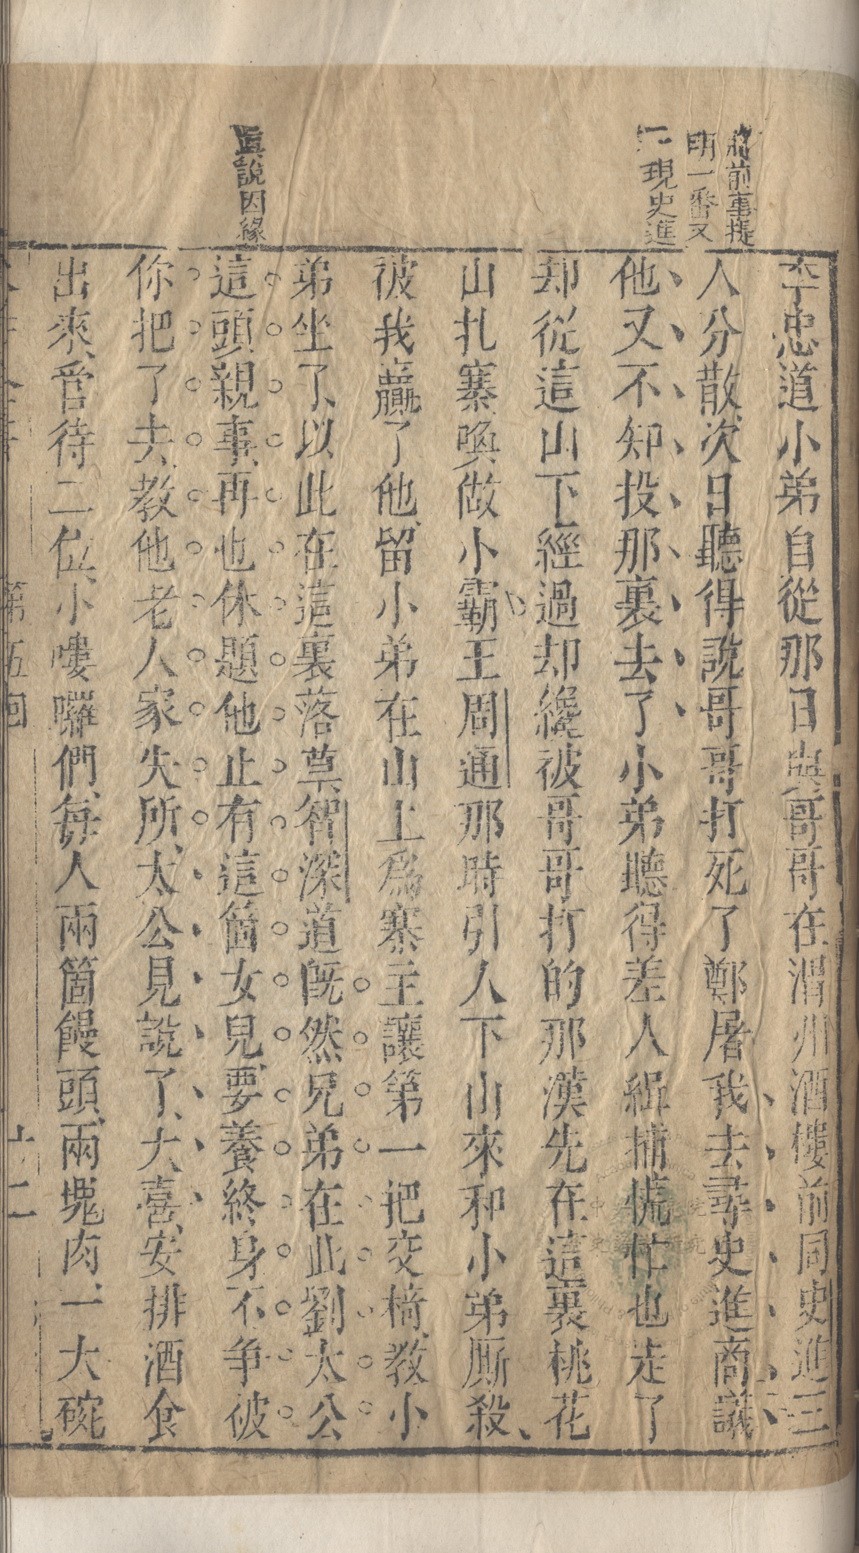 將前事提
明一番又
一現史進
李忠道小弟自從那日與哥哥在渭州酒樓前同史進三
人分散次日聽得說哥哥打死了鄭屠我去尋史進商議
他又不知投那裏去了小弟聽得差人緝捕慌忙也走了
却從這山下經過却纔被哥哥打的那漢先在這裏桃花
山扎寨喚做小霸王周通那時引人下山來和小弟厮殺
被我贏了他留小弟在山上爲寨主讓第一把交椅教小
弟坐了以此在這裏落草智深道既然兄弟在此劉太公
眞說因緣
這頭親事再也休題他止有這箇女兒要養終身不爭被
你把了去教他老人家失所太公見說了大喜安排酒食
出來管待二位小嘍囉們每人兩箇饅頭兩塊肉一大碗
第五回
十二